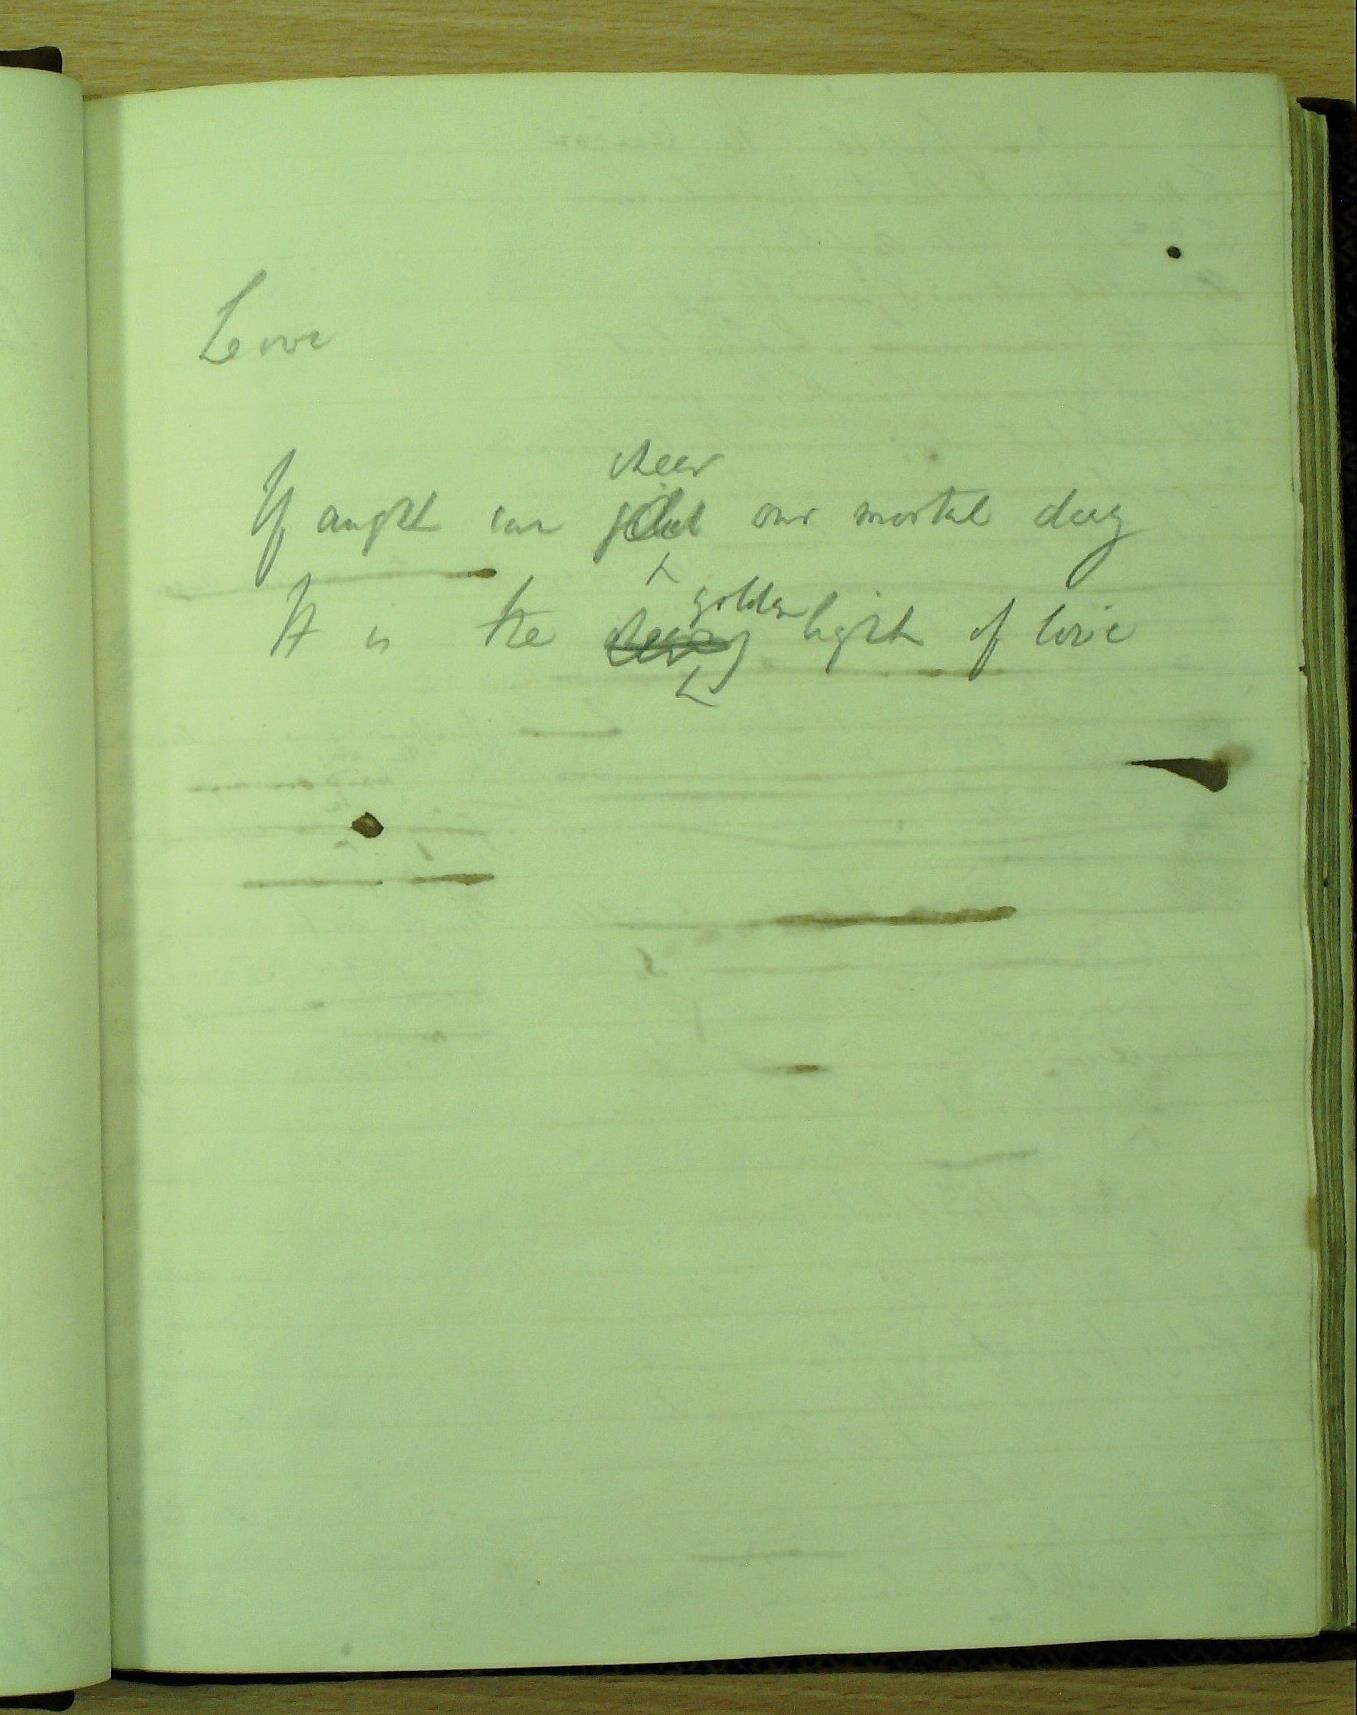 Love
cheer
If aught can gild our mortal day
golden
It is the cheery light of love